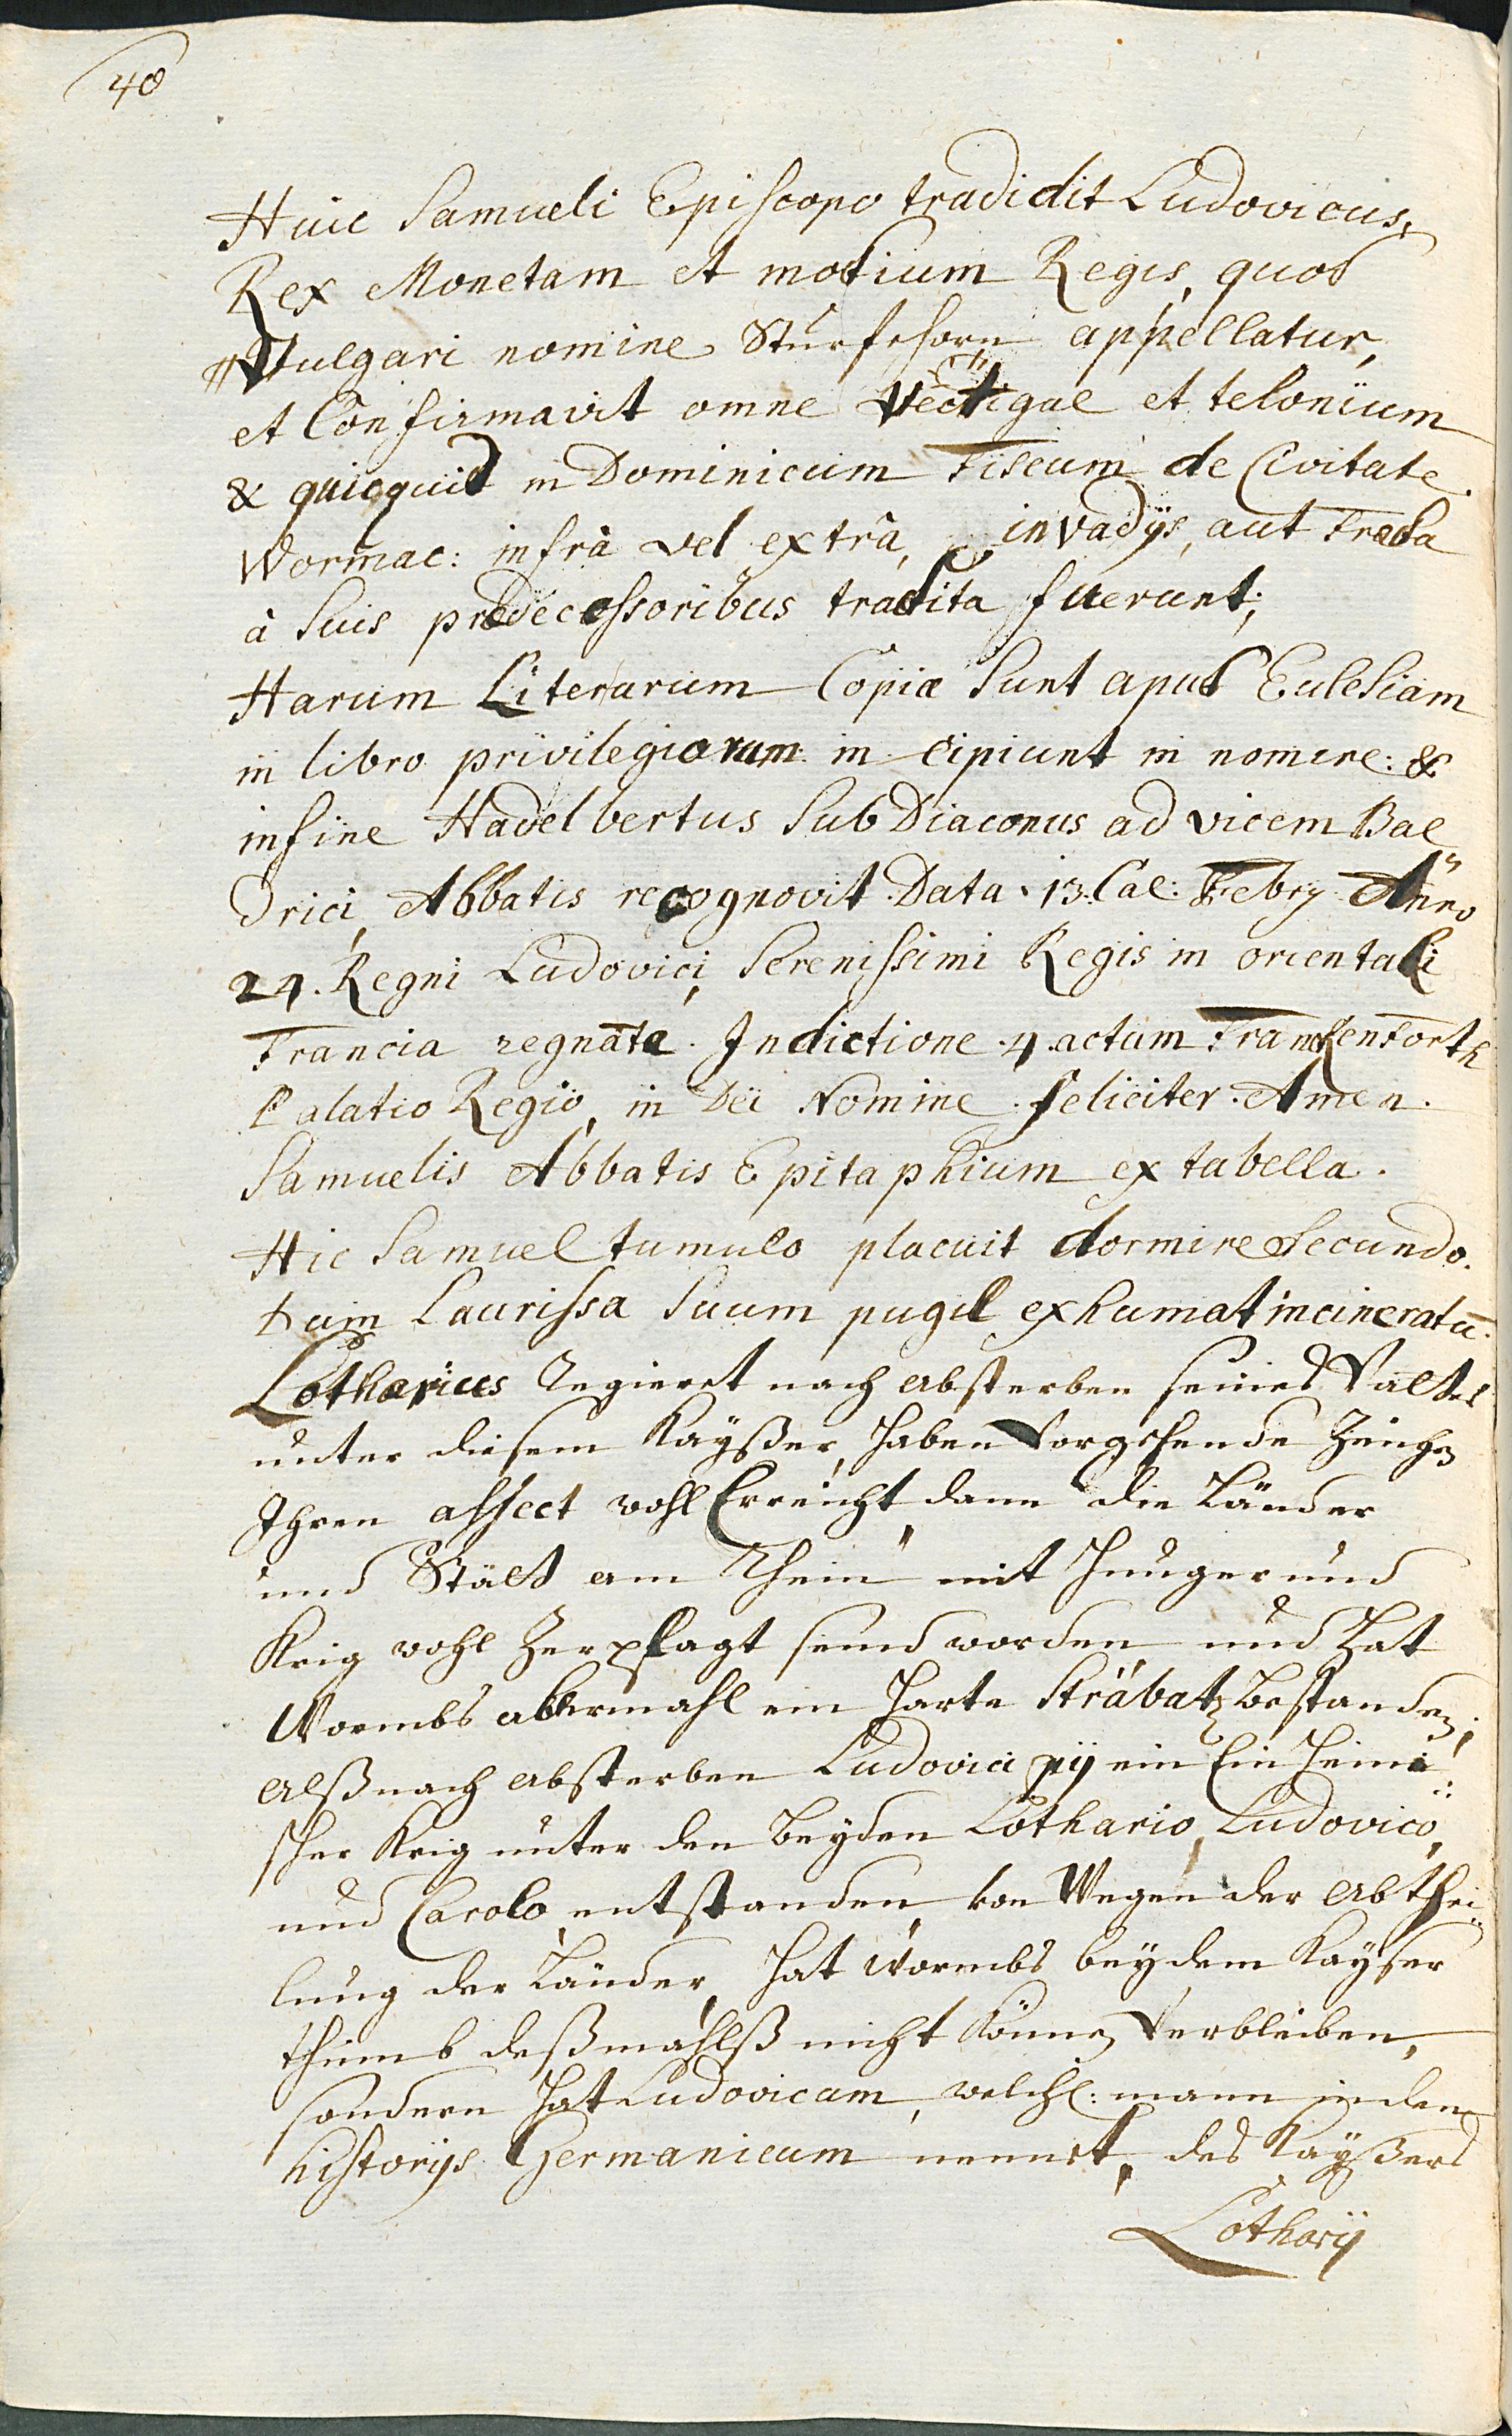 40
Huic Samueli Episcopo tradidit Ludovicus,
Rex Monetam et modium Regis, quod
Vulgari nomine Sturfehorn appellatur,
et Confirmavit omne Vectigal et telonium
& quicquid in Dominicum Fiscum de Civitate
Wormac: infrà vel extrà, in vadÿs, aut Freda
à Suis prædecessoribus tradita fuerunt;
Harum Literarum Copiæ Sunt apud Eclesiam
in libro privilegiorum in cipiunt in nomine: &
in fine Hadelbertus SubDiaconus ad vicem Bal
drici, Abbatis recognovit. Data. 13. Cal: Febrÿ Anno
24. Regni Ludovici, Serenissimi Regis in orientali
Francia regnate. Indictione. 4. actum Franckenforth
Palatio Regio, in Dei Nomine feliciter. Amen.
Samuelis Abbatis Epitaphium ex tabella.
Hic Samuel tumulo placuit dormire Secundo.
dum Laurissa Suum pugil exhumat incineratū.
Lotharius Regieret nach absterben seines Vatters
unter diesem Kaÿßer, haben vorgehende Zeichen
Ihren affect wohl Erreicht, dann die Länder
und Stätt am Rhein mit Hunger und
Krig wohl Zerplagt seind worden und Hat
Wormbs abermahl ein Harte Strabatz bestanden;
alß nach absterben Ludovici pÿ ein Ein Heimi:
scher Krig unter den beÿden Lothario, Ludovico,
und Carolo, entstanden, von Wegen der abthei:
lung der Länder, Hat Wormbs beÿ dem Kaÿser
thumb deßmahlß nicht können Verbleiben,
sondern Hat Ludovicum, welchē: mann in den
historÿs Germanicum nennet, des Kaÿßers
Lotharÿ